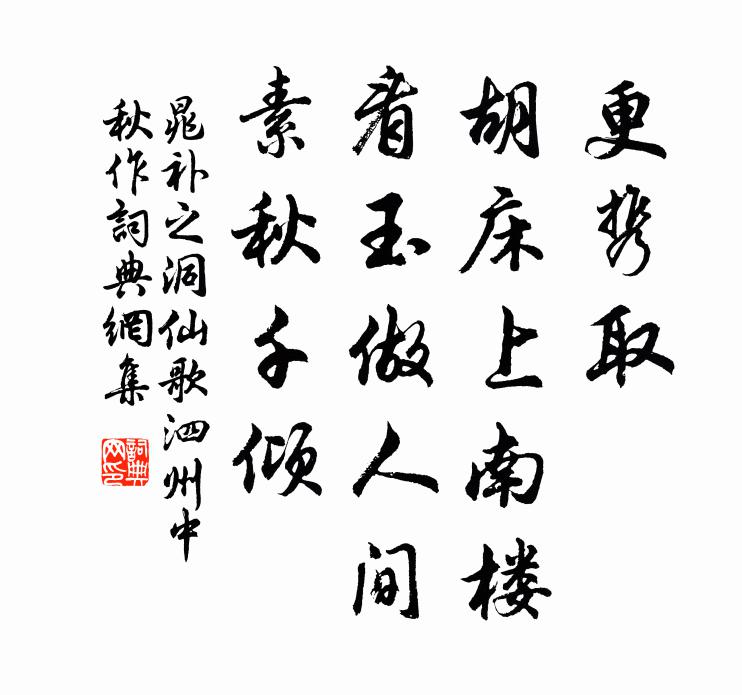 更携取
胡床上南楼
看玉做人间
素秋千倾
晁补之洞仙歌泗州中
秋作詞典網集
詞典
网印